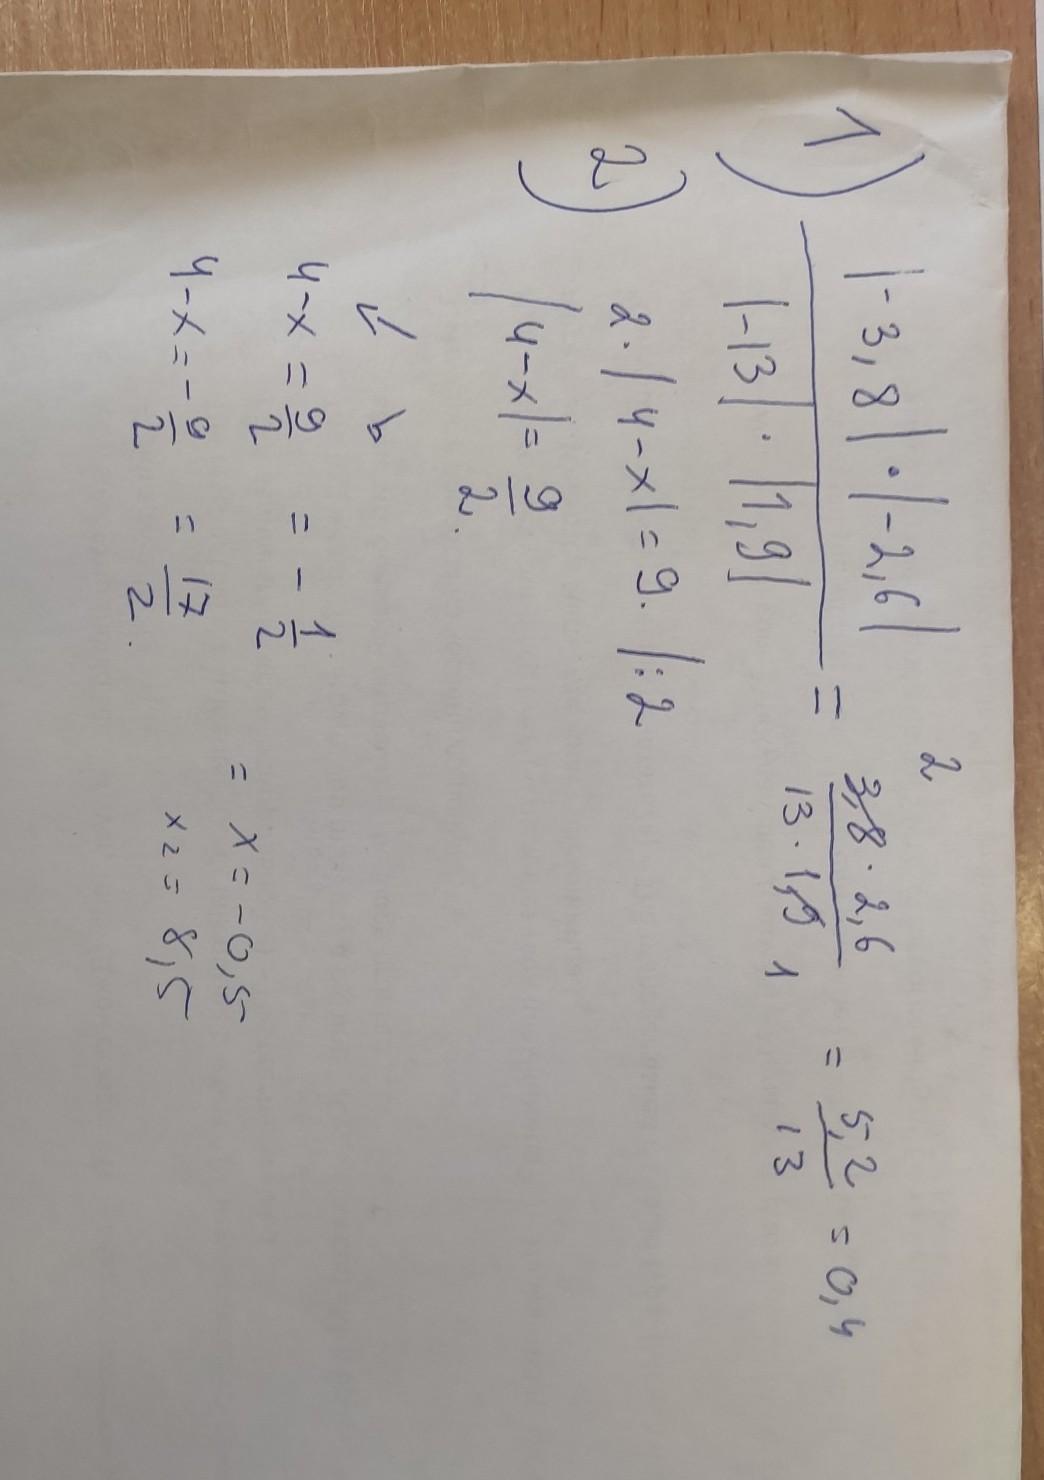 1) |-3,8| · |-2,6| / |-13| · |1,9| = 3,8 · 2,6 / 13 · 1,9 = 5,2 / 13 = 0,4
2
1
2) 2 · |4-x| = 9. |:2
|4-x| = 9/2.
4-x = 9/2 = -1/2
4-x = -9/2 = 17/2.
= x = -0,5
x2 = 8,5